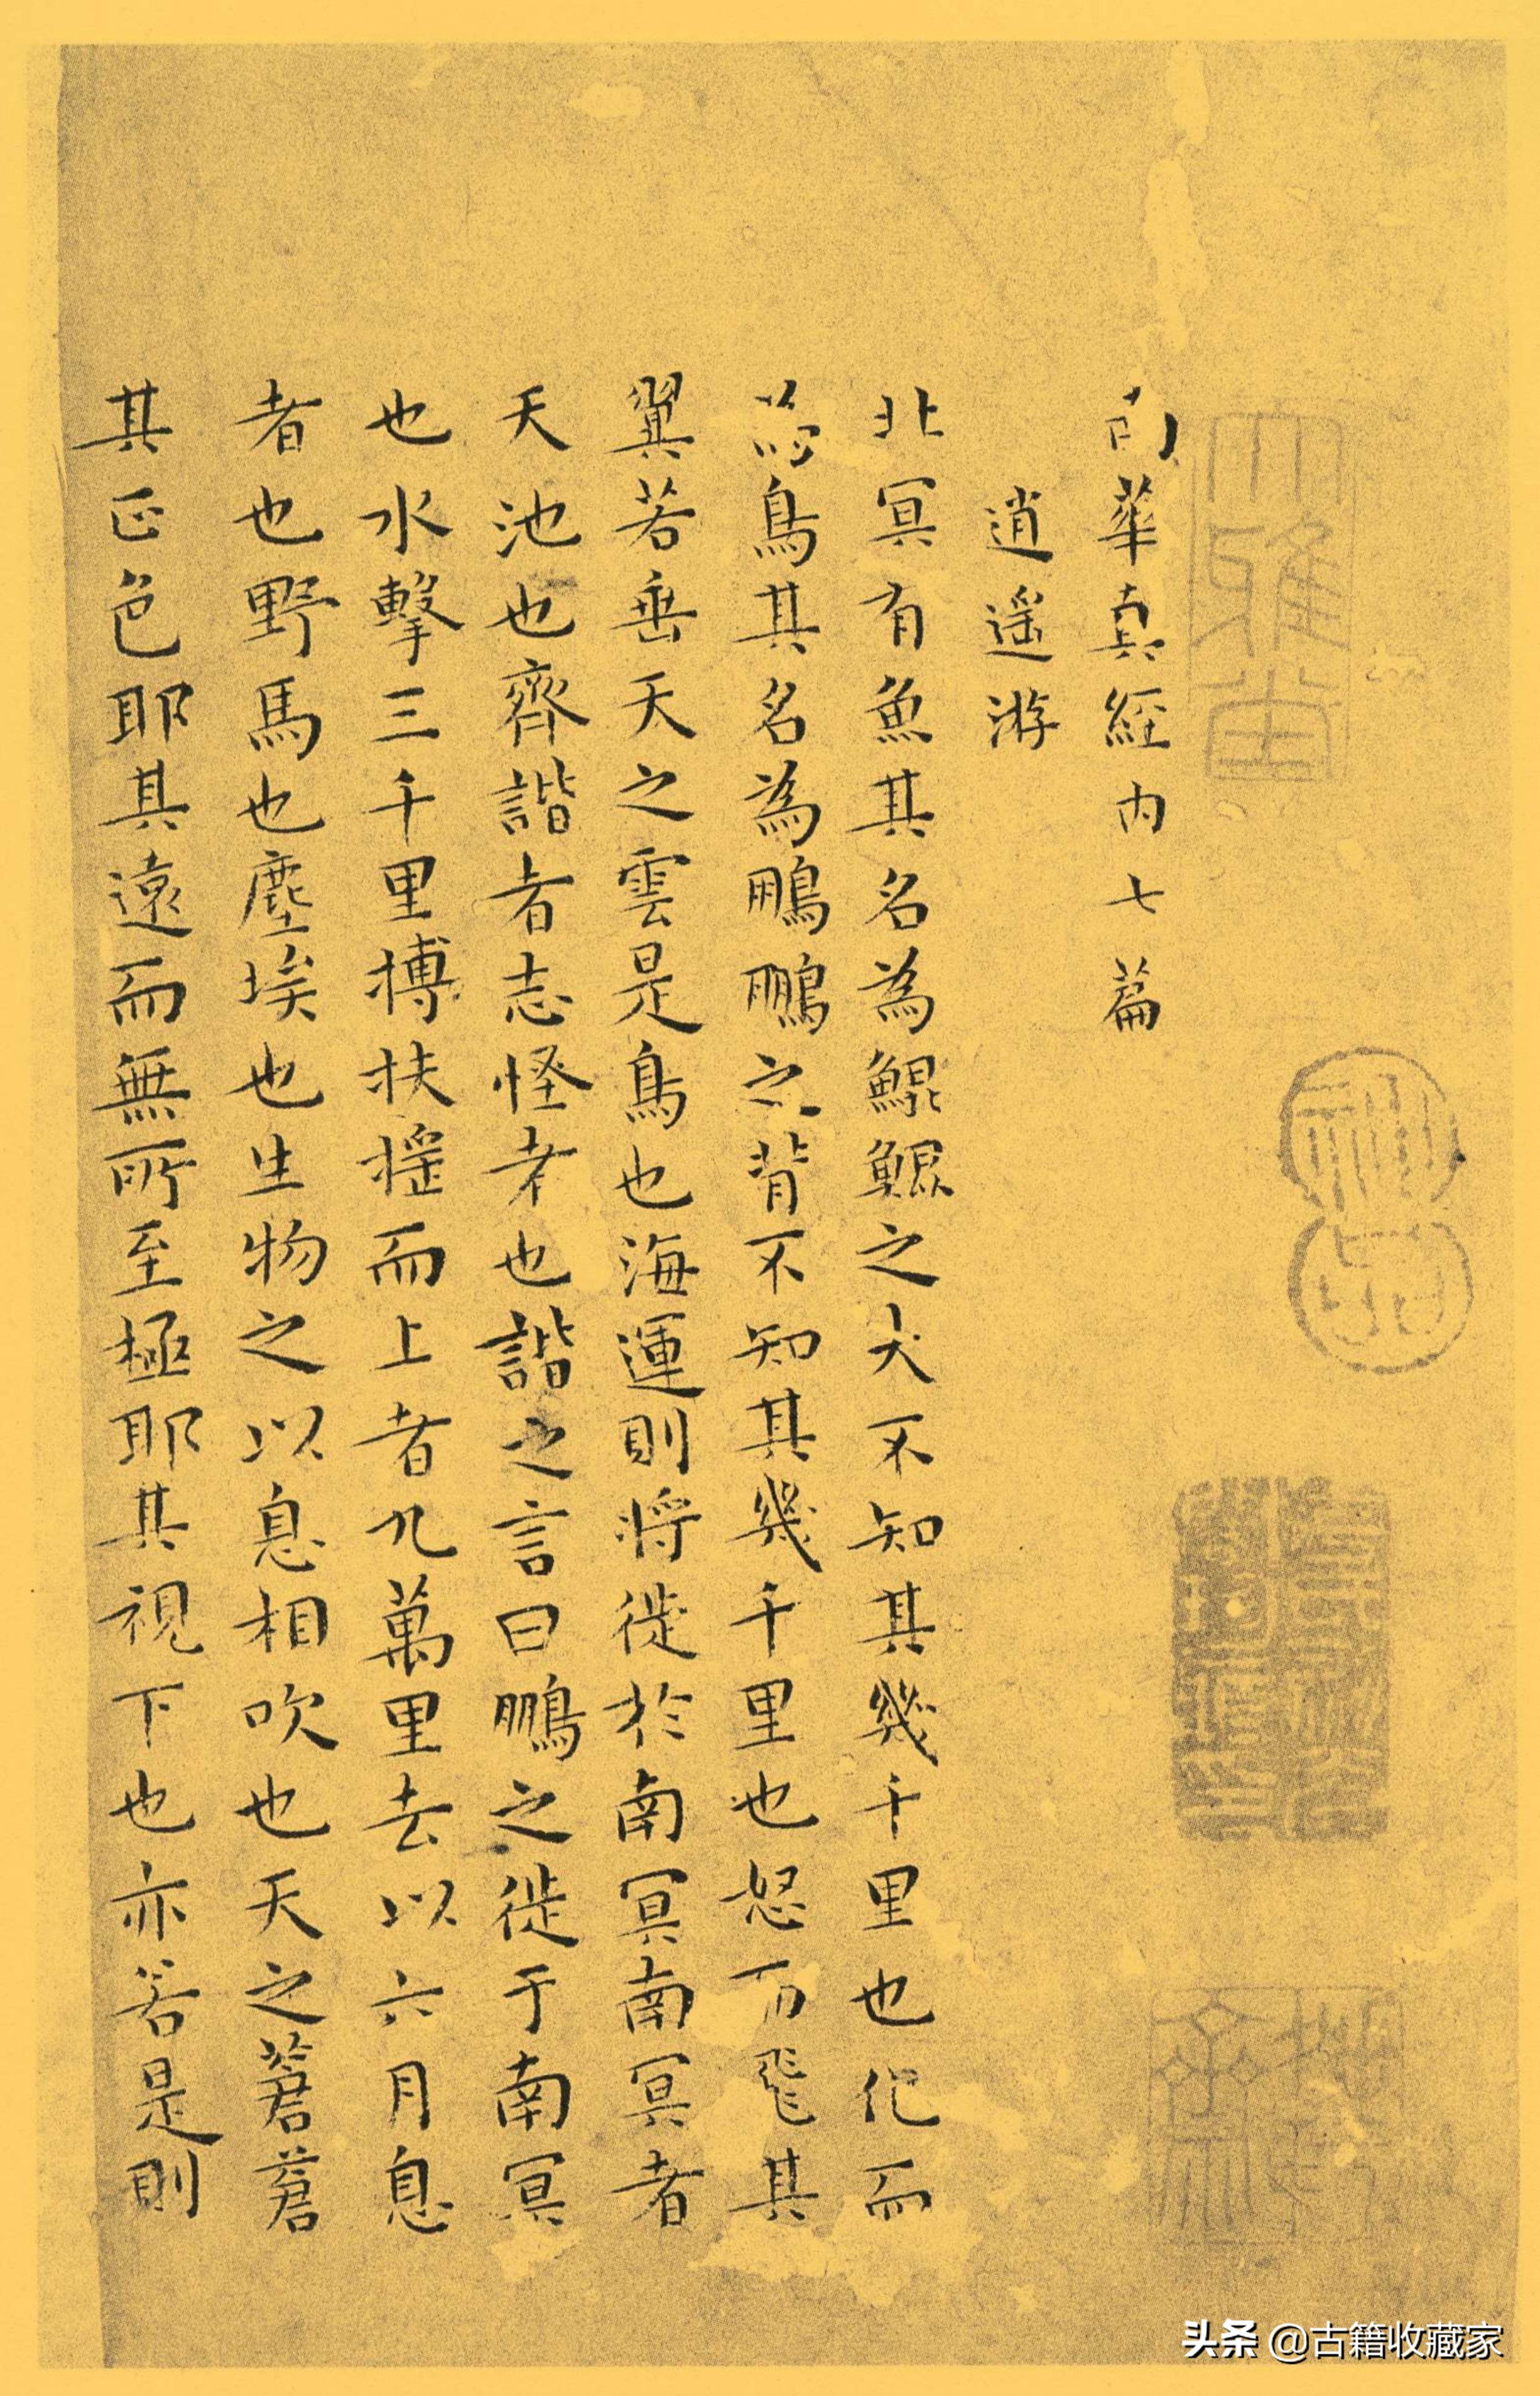 南華真經內七篇
逍遙游
北冥有魚其名為鯤鯤之大不知其幾千里也化而
為鳥其名為鵬鵬之背不知其幾千里也怒而飛其
翼若垂天之雲是鳥也海運則將徙於南冥南冥者
天池也齊諧者志怪者也諧之言曰鵬之徙于南冥
也水擊三千里搏扶搖而上者九萬里去以六月息
者也野馬也塵埃也生物之以息相吹也天之蒼蒼
其正色耶其遠而無所至極耶其視下也亦若是則
大雅堂
头条 @古籍收藏家